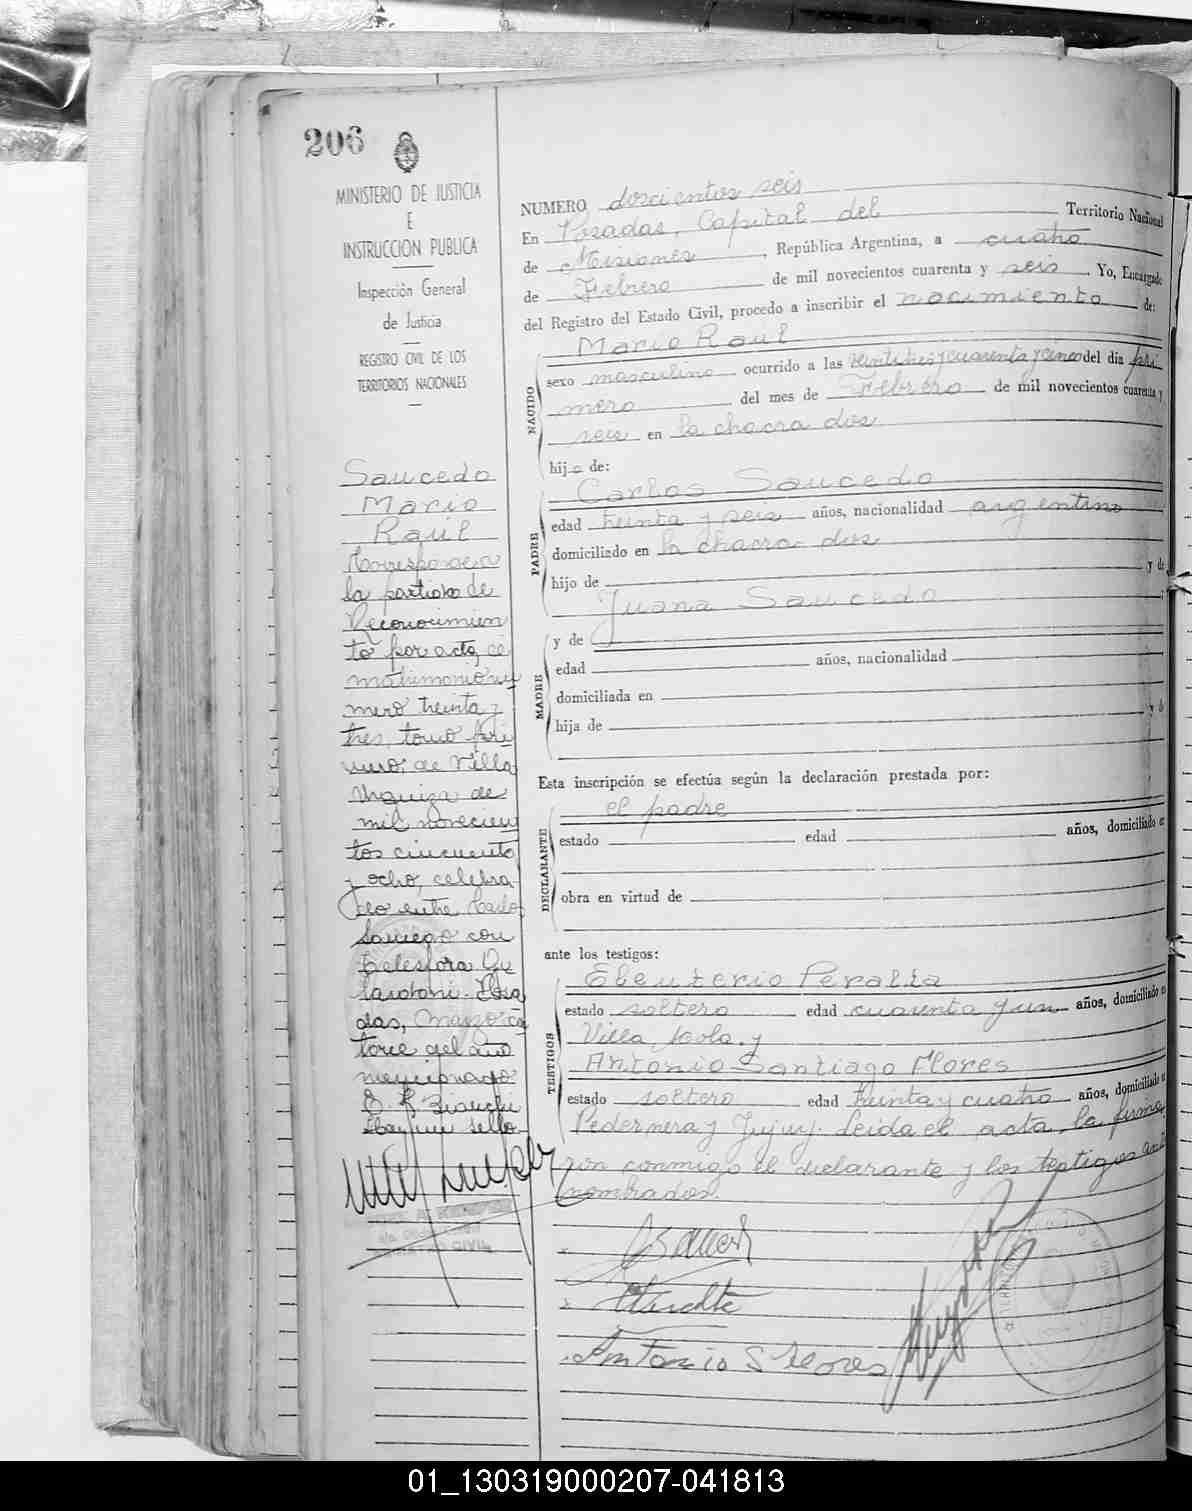 206
MINISTERIO DE JUSTICIA
E
INSTRUCCION PUBLICA
Inspección General
de Justicia
REGISTRO CIVIL DE LOS
TERRITORIOS NACIONALES
Saucedo
Mario
Raúl
Corresponde a
la partida de
Reconocimien
to por acta de
matrimonio nú
mero treinta y
tres, tomo pri
mero, de Villa
Urquiza de
mil novecien
tos cincuenta
y ocho, celebra
do entre Carlos
con
Telesfora
Posa
das, Mayo ca
torce del año
mencionado
Hay un sello
NUMERO doscientos seis
En Posadas, Capital del Territorio Nacional
de Misiones, República Argentina, a cuatro
de Febrero de mil novecientos cuarenta y seis Yo, Encargado
del Registro del Estado Civil, procedo a inscribir el nacimiento de:
NACIDO
Mario Raúl
sexo masculino ocurrido a las veintitres y cuarenta y cinco del día pri
mero del mes de Febrero de mil novecientos cuarenta y
seis en la chacra dos
hijo de:
PADRE
Carlos Saucedo
edad treinta y seis años, nacionalidad argentino
domiciliado en la chacra dos
hijo de y de
Juana Saucedo
MADRE
y de
edad años, nacionalidad
domiciliada en
hija de y de
Esta inscripción se efectúa según la declaración prestada por:
DECLARANTE
el padre
estado edad años, domiciliado en
obra en virtud de
ante los testigos:
TESTIGOS
Eleuterio Peralta
estado soltero edad cuarenta y un años, domiciliado en
Villa y
Antonio Santiago Flores
estado soltero edad treinta y cuatro años, domiciliado en
Pedernera y Jujuy. Leida el acta, la firma
ron conmigo el declarante y los testigos ante
nombrados.
Antonio S Flores
01_130319000207-041813